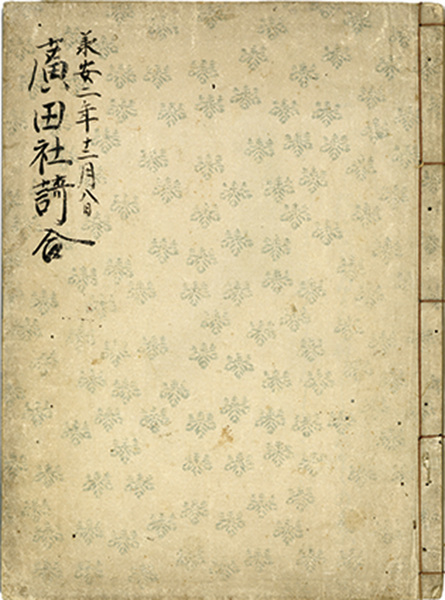 承安二年十二月八日
廣田社謌合